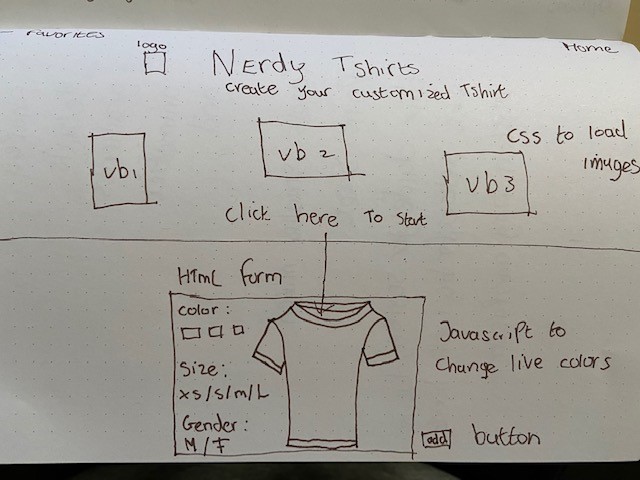 Favorites
Home
logo
Nerdy Tshirts
create your customized Tshirt
CSS to load
images
vb1
vb2
vb3
Click here To Start
HTML form
Color:
Size:
xs/s/m/L
Gender:
M/F
Javascript to
Change live colors
add button